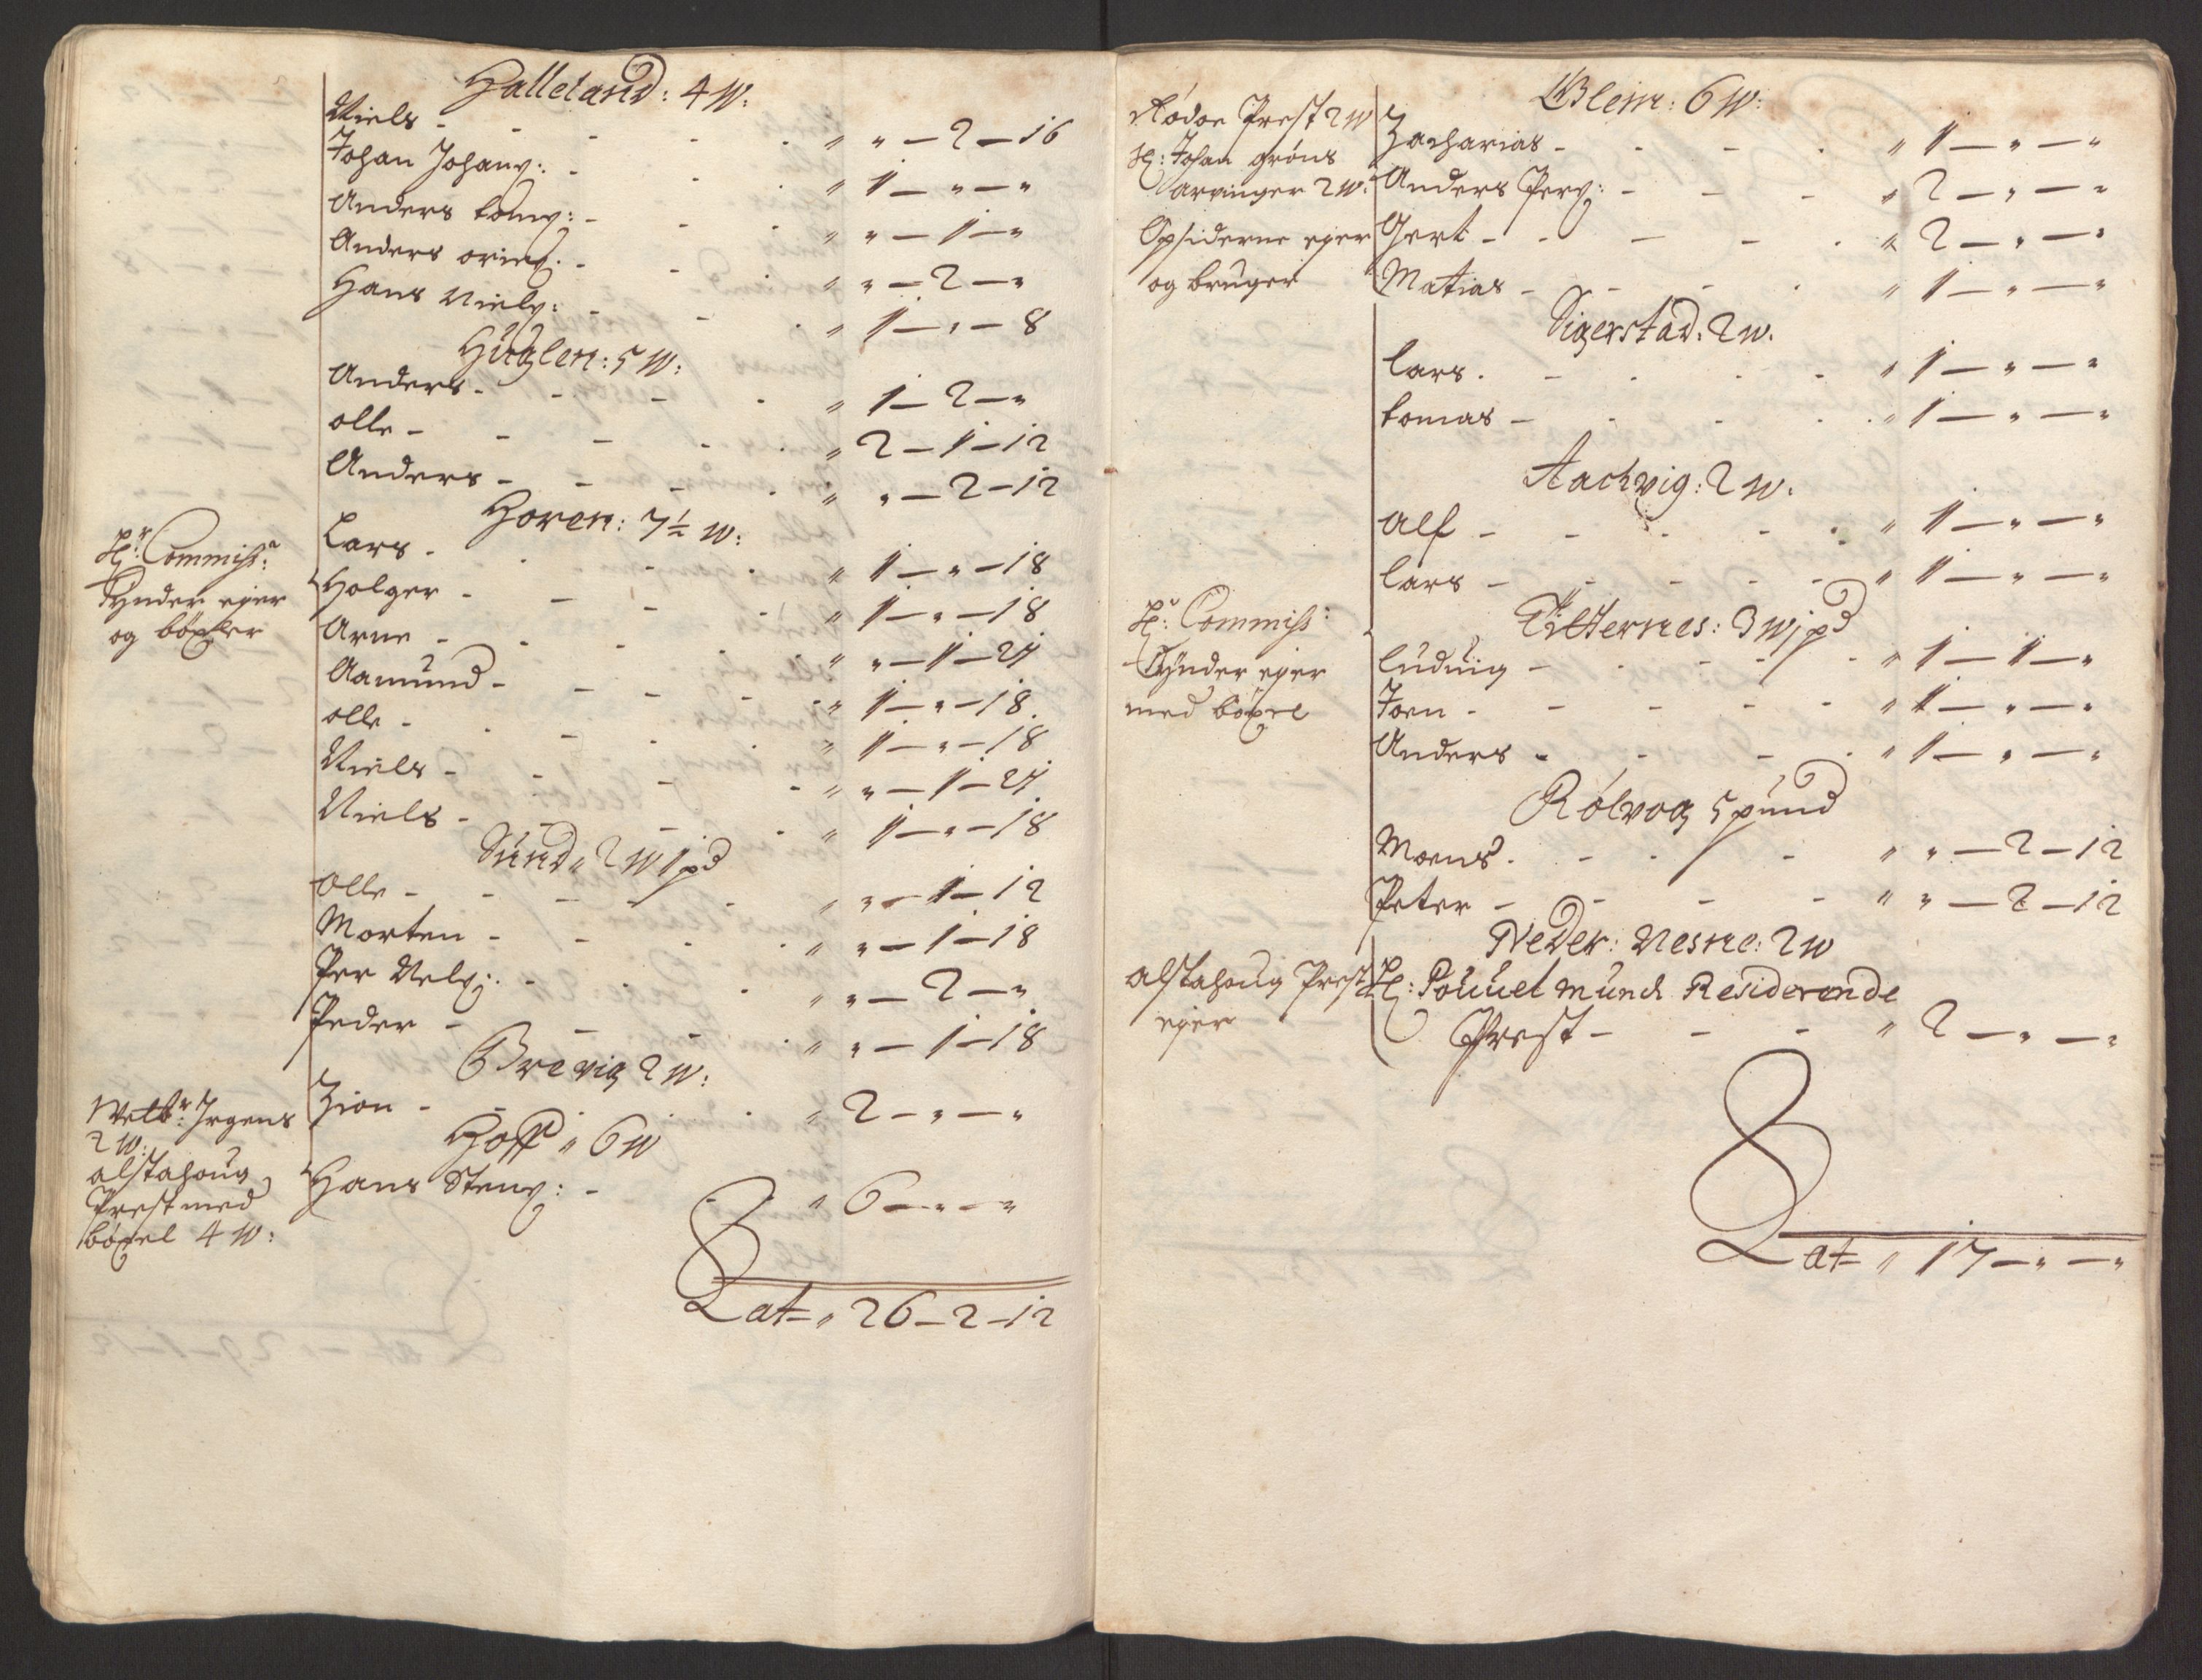 Halleland: 4 W:
Niels - - - - „ „ — 2 — 16
Johan Johans: - - - „ 1 — „ — „
Anders toms: - - - „ „ — 1 — „
Anders - - „ „ — 2 — „
Hans Niels: - - - „ 1 — „ — 8
Huglen: 5 W:
Anders - - - - „ 1 — 2 — „
olle - - - - - „ 2 — 1 — 12
Anders - - - - „ „ — 2 — 12
Horen: 7½ W:
Lars - - - - „ 1 — „ — 18
Hr: Commiss:
Tynder ejer
og böxler
Holger - - - - „ 1 — „ — 18
Arne - - - - „ „ — 1 — 21
Aamund - - - - - „ 1 — „ — 18
olle - - - - - „ 1 — „ — 18
Niels - - - - „ „ — 1 — 21
Niels - - - - „ 1 — „ — 18
Sund „ 2 W 1 pd
Olle - - - - - „ „ — 1 — 12
Morten - - - - „ „ — 1 — 18
Per Nels: - - - „ „ — 2 — „
Peder - - - - „ „ — 1 — 18
Brevig 2 W:
Zion - - - - „ 2 — „ — „
Hoff „ 6 W
Welb: Jrgens
2 W:
alstahoug
Prest med
böxel 4 W:
Hans Stens: - - „ 6 — „ — „
Lat „ 26 — 2 — 12
Glein: 6 W:
Rödoe Prest 2 W
Hr: Johan gröns
arvinger 2 W:
Opsiderne ejer
og bruger
Zacharias - - - - „ 1 — „ — „
Anders Pers: - - - „ 2 — „ — „
Gert - - - - - „ 2 — „ — „
Matias - - - - „ 1 — „ — „
Sigerstad: 2 W:
Lars - - - - - „ 1 — „ — „
tomas - - - - - „ 1 — „ — „
Aachvig: 2 W:
alf - - - - - „ 1 — „ — „
Lars - - - - - „ 1 — „ — „
Tilternes: 3 W 1 pd
Hr: Commiss:
Tynder ejer
med böxel
Ludvig - - - - - „ 1 — 1 — „
Joen - - - - - „ 1 — „ — „
Anders - - - - „ 1 — „ — „
Rölvog 5 pund
Moens - - - - „ „ — 2 — 12
Peter - - - - „ „ — 2 — 12
Neder: Nesne: 2 W
alstahoug Prest
ejer
Hr: Pouuel Munck Residerende
Prest - - - „ 2 — „ — „
Lat „ 17 — „ — „